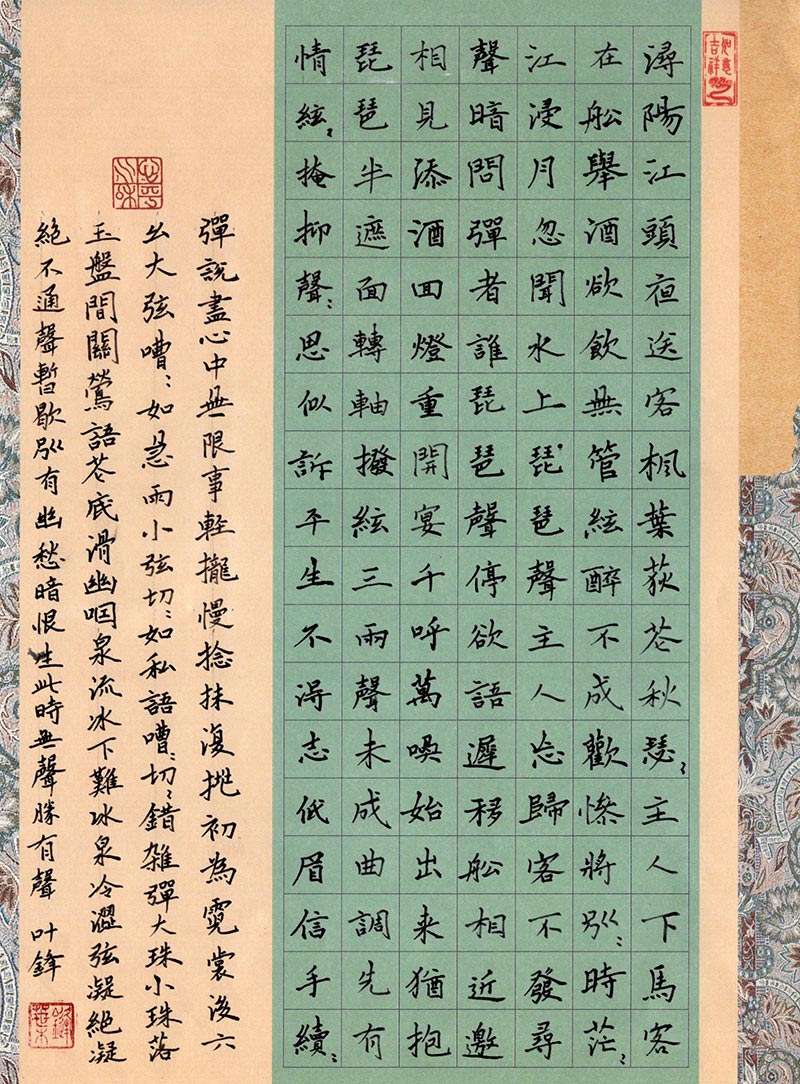 潯陽江頭夜送客楓葉荻花秋瑟〻主人下馬客
在舩舉酒欲飲無管絃醉不成歡慘將別〻時茫〻
江浸月忽聞水上琵琶聲主人忘歸客不發尋
聲暗問彈者誰琵琶聲停欲語遲移舩相近邀
相見添酒回燈重開宴千呼萬喚始出来猶抱
琵琶半遮面轉軸撥絃三兩聲未成曲調先有
情絃〻掩抑聲〻思似訴平生不得志低眉信手續〻
彈說盡心中無限事輕攏慢捻抹復挑初為霓裳後六
幺大弦嘈〻如急雨小弦切〻如私語嘈〻切〻錯雜彈大珠小珠落
玉盤間關鶯語花底滑幽咽泉流冰下難冰泉冷澀弦凝絕凝
絕不通聲暫歇別有幽愁暗恨生此時無聲勝有聲 叶鋒
如意吉祥